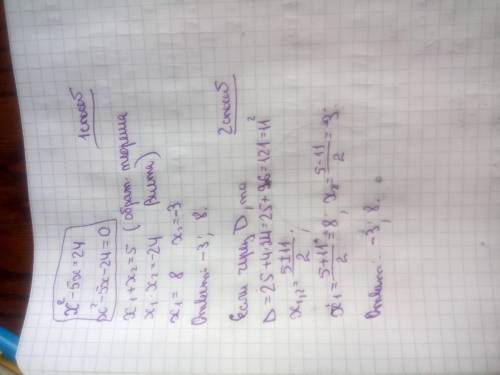 1 способ
x² - 5x = 24
x² - 5x - 24 = 0
x₁ + x₂ = 5 (обрат. теорема
x₁ · x₂ = -24 Виета)
x₁ = 8 x₂ = -3
Ответ: -3; 8.
2 способ
Если через D, то
D = 25 + 4·24 = 25 + 96 = 121 = 11²
x₁,₂ = (5 ± 11)/2;
x₁ = (5 + 11)/2 = 8; x₂ = (5 - 11)/2 = -3.
Ответ: -3; 8.